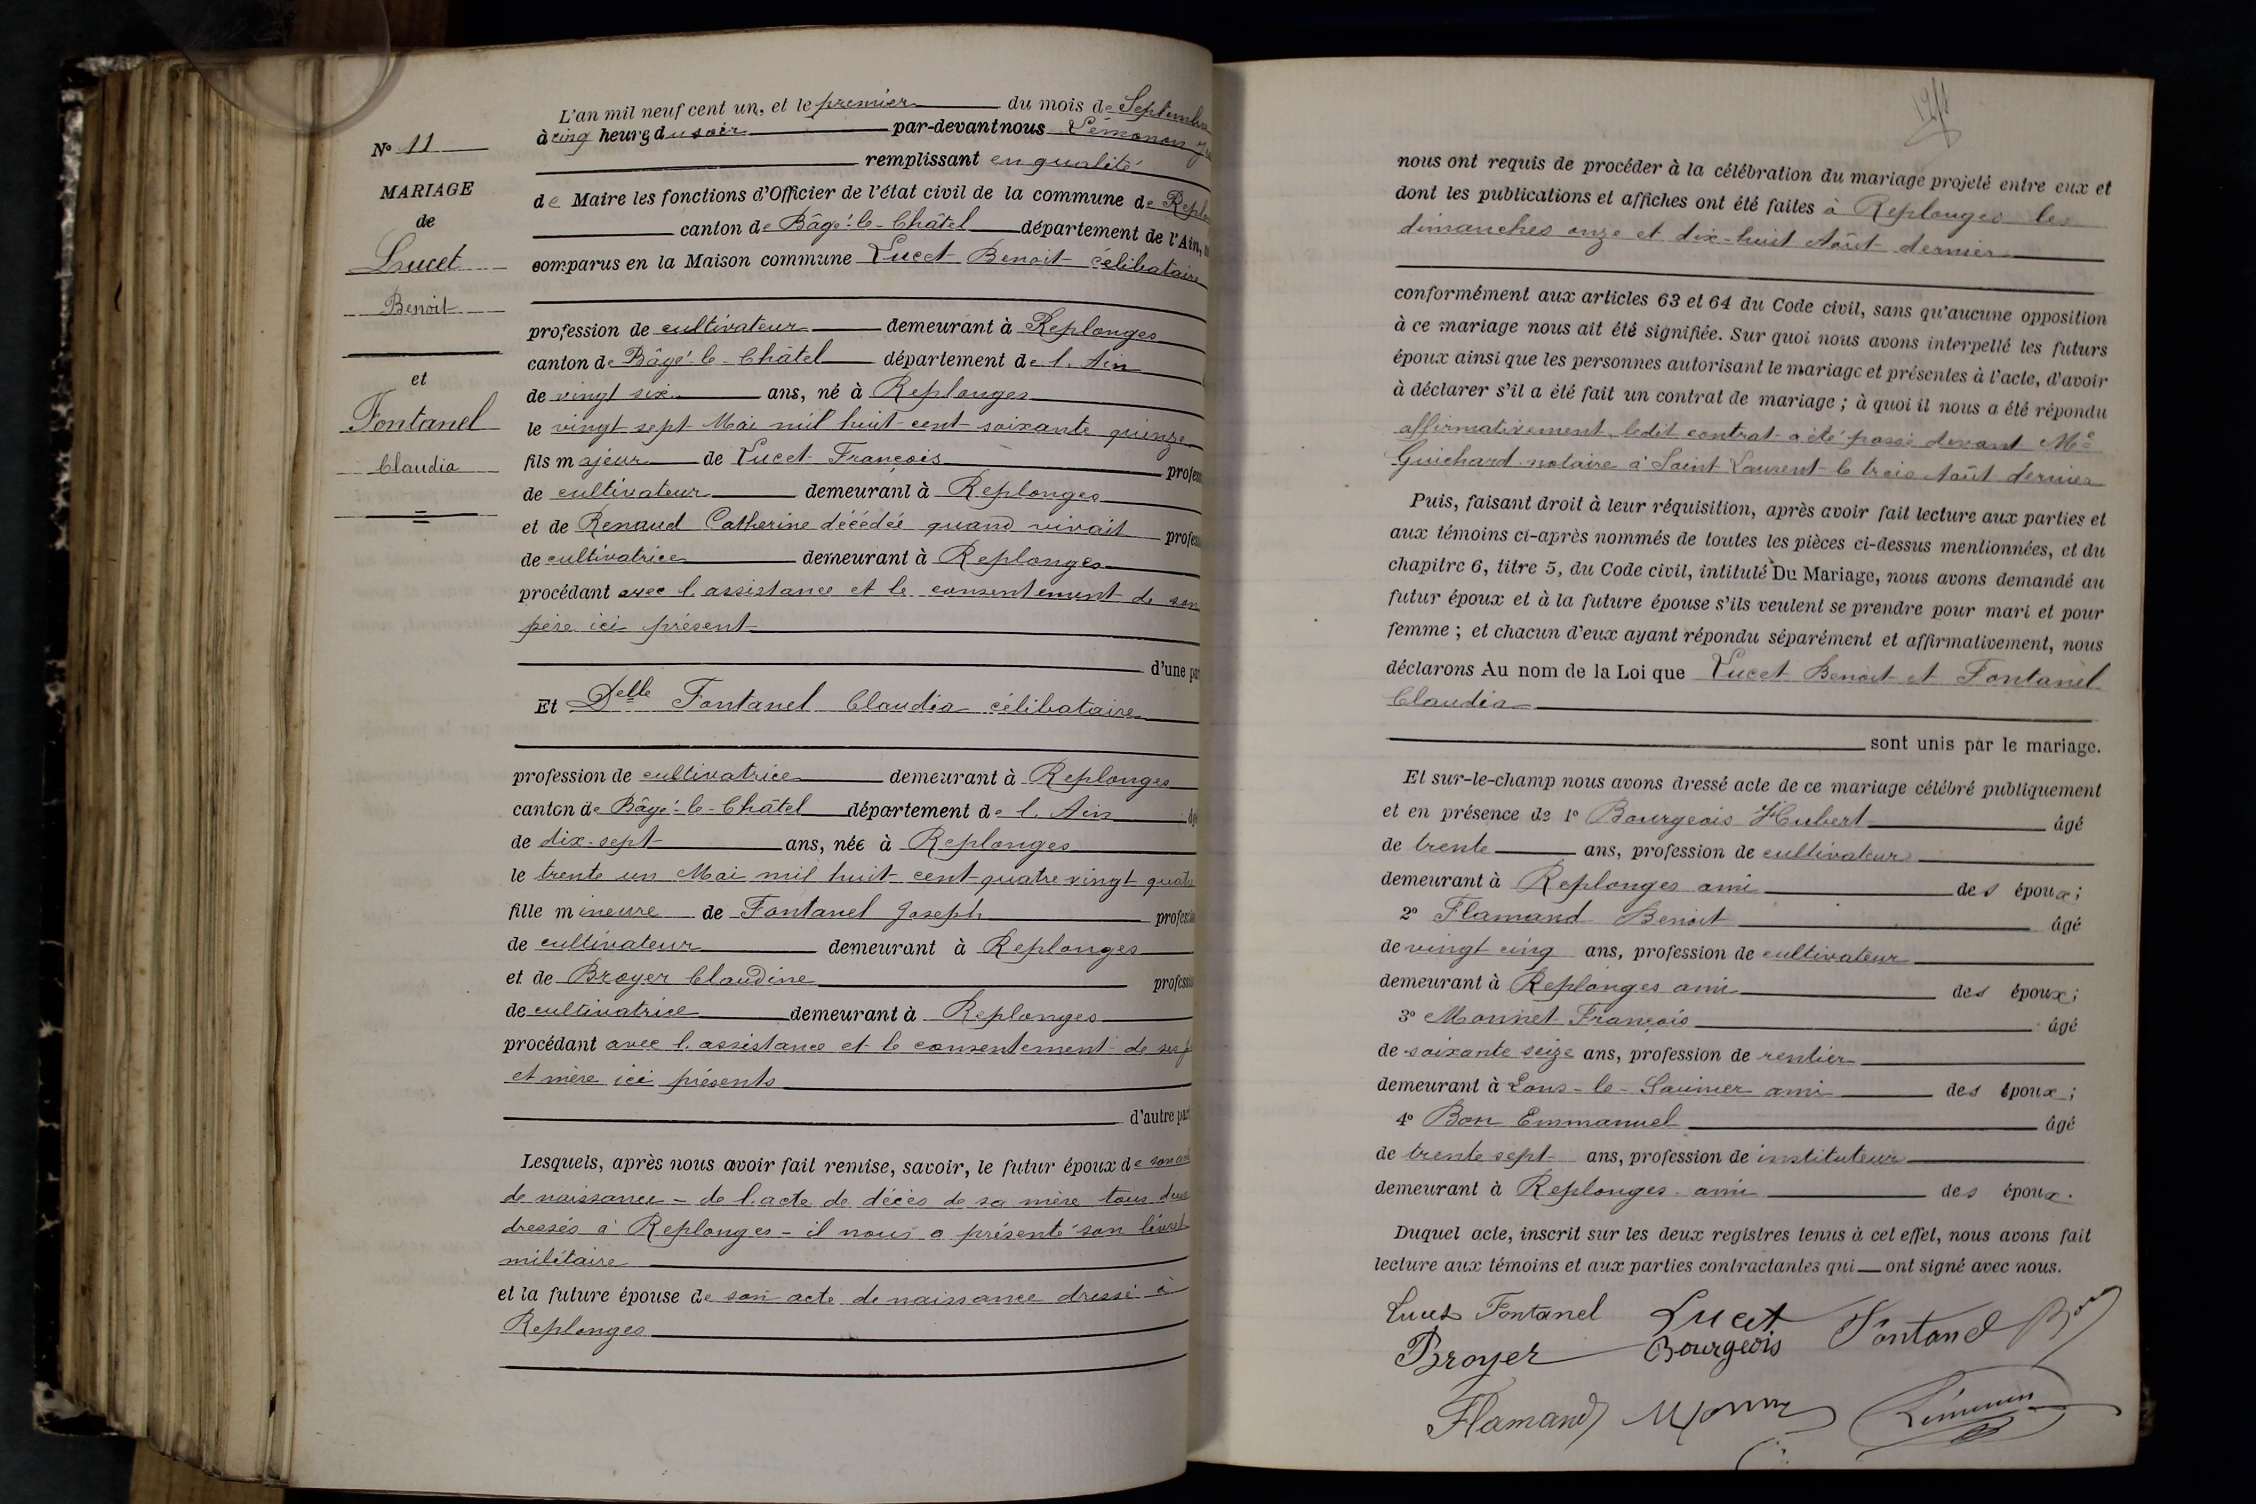 N° 11
MARIAGE
de
Lucet
Benoit
et
Fontanel
Claudia
L'an mil neuf cent un, et le premier du mois de Septembre
à cinq heures du soir par-devant nous Lémonon
remplissant en qualité
de Maire les fonctions d'Officier de l'état civil de la commune de Replo
canton de Bâgé-le-Châtel département de l'Ain,
comparus en la Maison commune Lucet Benoit célibataire
profession de cultivateur demeurant à Replonges
canton de Bâgé-le-Châtel département de l'Ain
de vingt six ans, né à Replonges
le vingt sept Mai mil huit cent soixante quinze
fils majeur de Lucet François profes
de cultivateur demeurant à Replonges
et de Renaud Catherine décédée quand vivait profes
de cultivatrice demeurant à Replonges
procédant avec l'assistance et le consentement de son
père ici présent
d'une par
Et Delle Fontanel Claudia célibataire
profession de cultivatrice demeurant à Replonges
canton de Bâgé-le-Châtel département de l'Ain âg
de dix-sept ans, née à Replonges
le trente un Mai mil huit cent quatre vingt quatre
fille mineure de Fontanel Joseph profession
de cultivateur demeurant à Replonges
et de Broyer Claudine profession
de cultivatrice demeurant à Replonges
procédant avec l'assistance et le consentement de ses p
et mère ici présents
d'autre par
Lesquels, après nous avoir fait remise, savoir, le futur époux de son
de naissance - de l'acte de décès de sa mère tous deux
dressés à Replonges - il nous a présenté son livret
militaire
et la future épouse de son acte de naissance dressé à
Replonges
nous ont requis de procéder à la célébration du mariage projeté entre eux et
dont les publications et affiches ont été faites à Replonges les
dimanches onze et dix-huit Août dernier
conformément aux articles 63 et 64 du Code civil, sans qu'aucune opposition
à ce mariage nous ait été signifiée. Sur quoi nous avons interpellé les futurs
époux ainsi que les personnes autorisant le mariage et présentes à l'acte, d'avoir
à déclarer s'il a été fait un contrat de mariage ; à quoi il nous a été répondu
affirmativement, ledit contrat a été passé devant Me
Guichard notaire à Saint Laurent le trois Août dernier
Puis, faisant droit à leur réquisition, après avoir fait lecture aux parties et
aux témoins ci-après nommés de toutes les pièces ci-dessus mentionnées, et du
chapitre 6, titre 5, du Code civil, intitulé Du Mariage, nous avons demandé au
futur époux et à la future épouse s'ils veulent se prendre pour mari et pour
femme ; et chacun d'eux ayant répondu séparément et affirmativement, nous
déclarons Au nom de la Loi que Lucet Benoit et Fontanel
Claudia
sont unis par le mariage.
Et sur-le-champ nous avons dressé acte de ce mariage célébré publiquement
et en présence de 1° Bourgeois Hubert âgé
de trente ans, profession de cultivateur
demeurant à Replonges ami des époux ;
2° Flamand Benoit âgé
de vingt cinq ans, profession de cultivateur
demeurant à Replonges ami des époux ;
3° Monnet François âgé
de soixante seize ans, profession de rentier
demeurant à Lons-le-Saunier ami des époux ;
4° Bon Emmanuel âgé
de trente sept ans, profession de instituteur
demeurant à Replonges ami des époux.
Duquel acte, inscrit sur les deux registres tenus à cet effet, nous avons fait
lecture aux témoins et aux parties contractantes qui ont signé avec nous.
Lucet Fontanel Lucet Fontanel Bon
Broyer Bourgeois
Flamand Lémonon